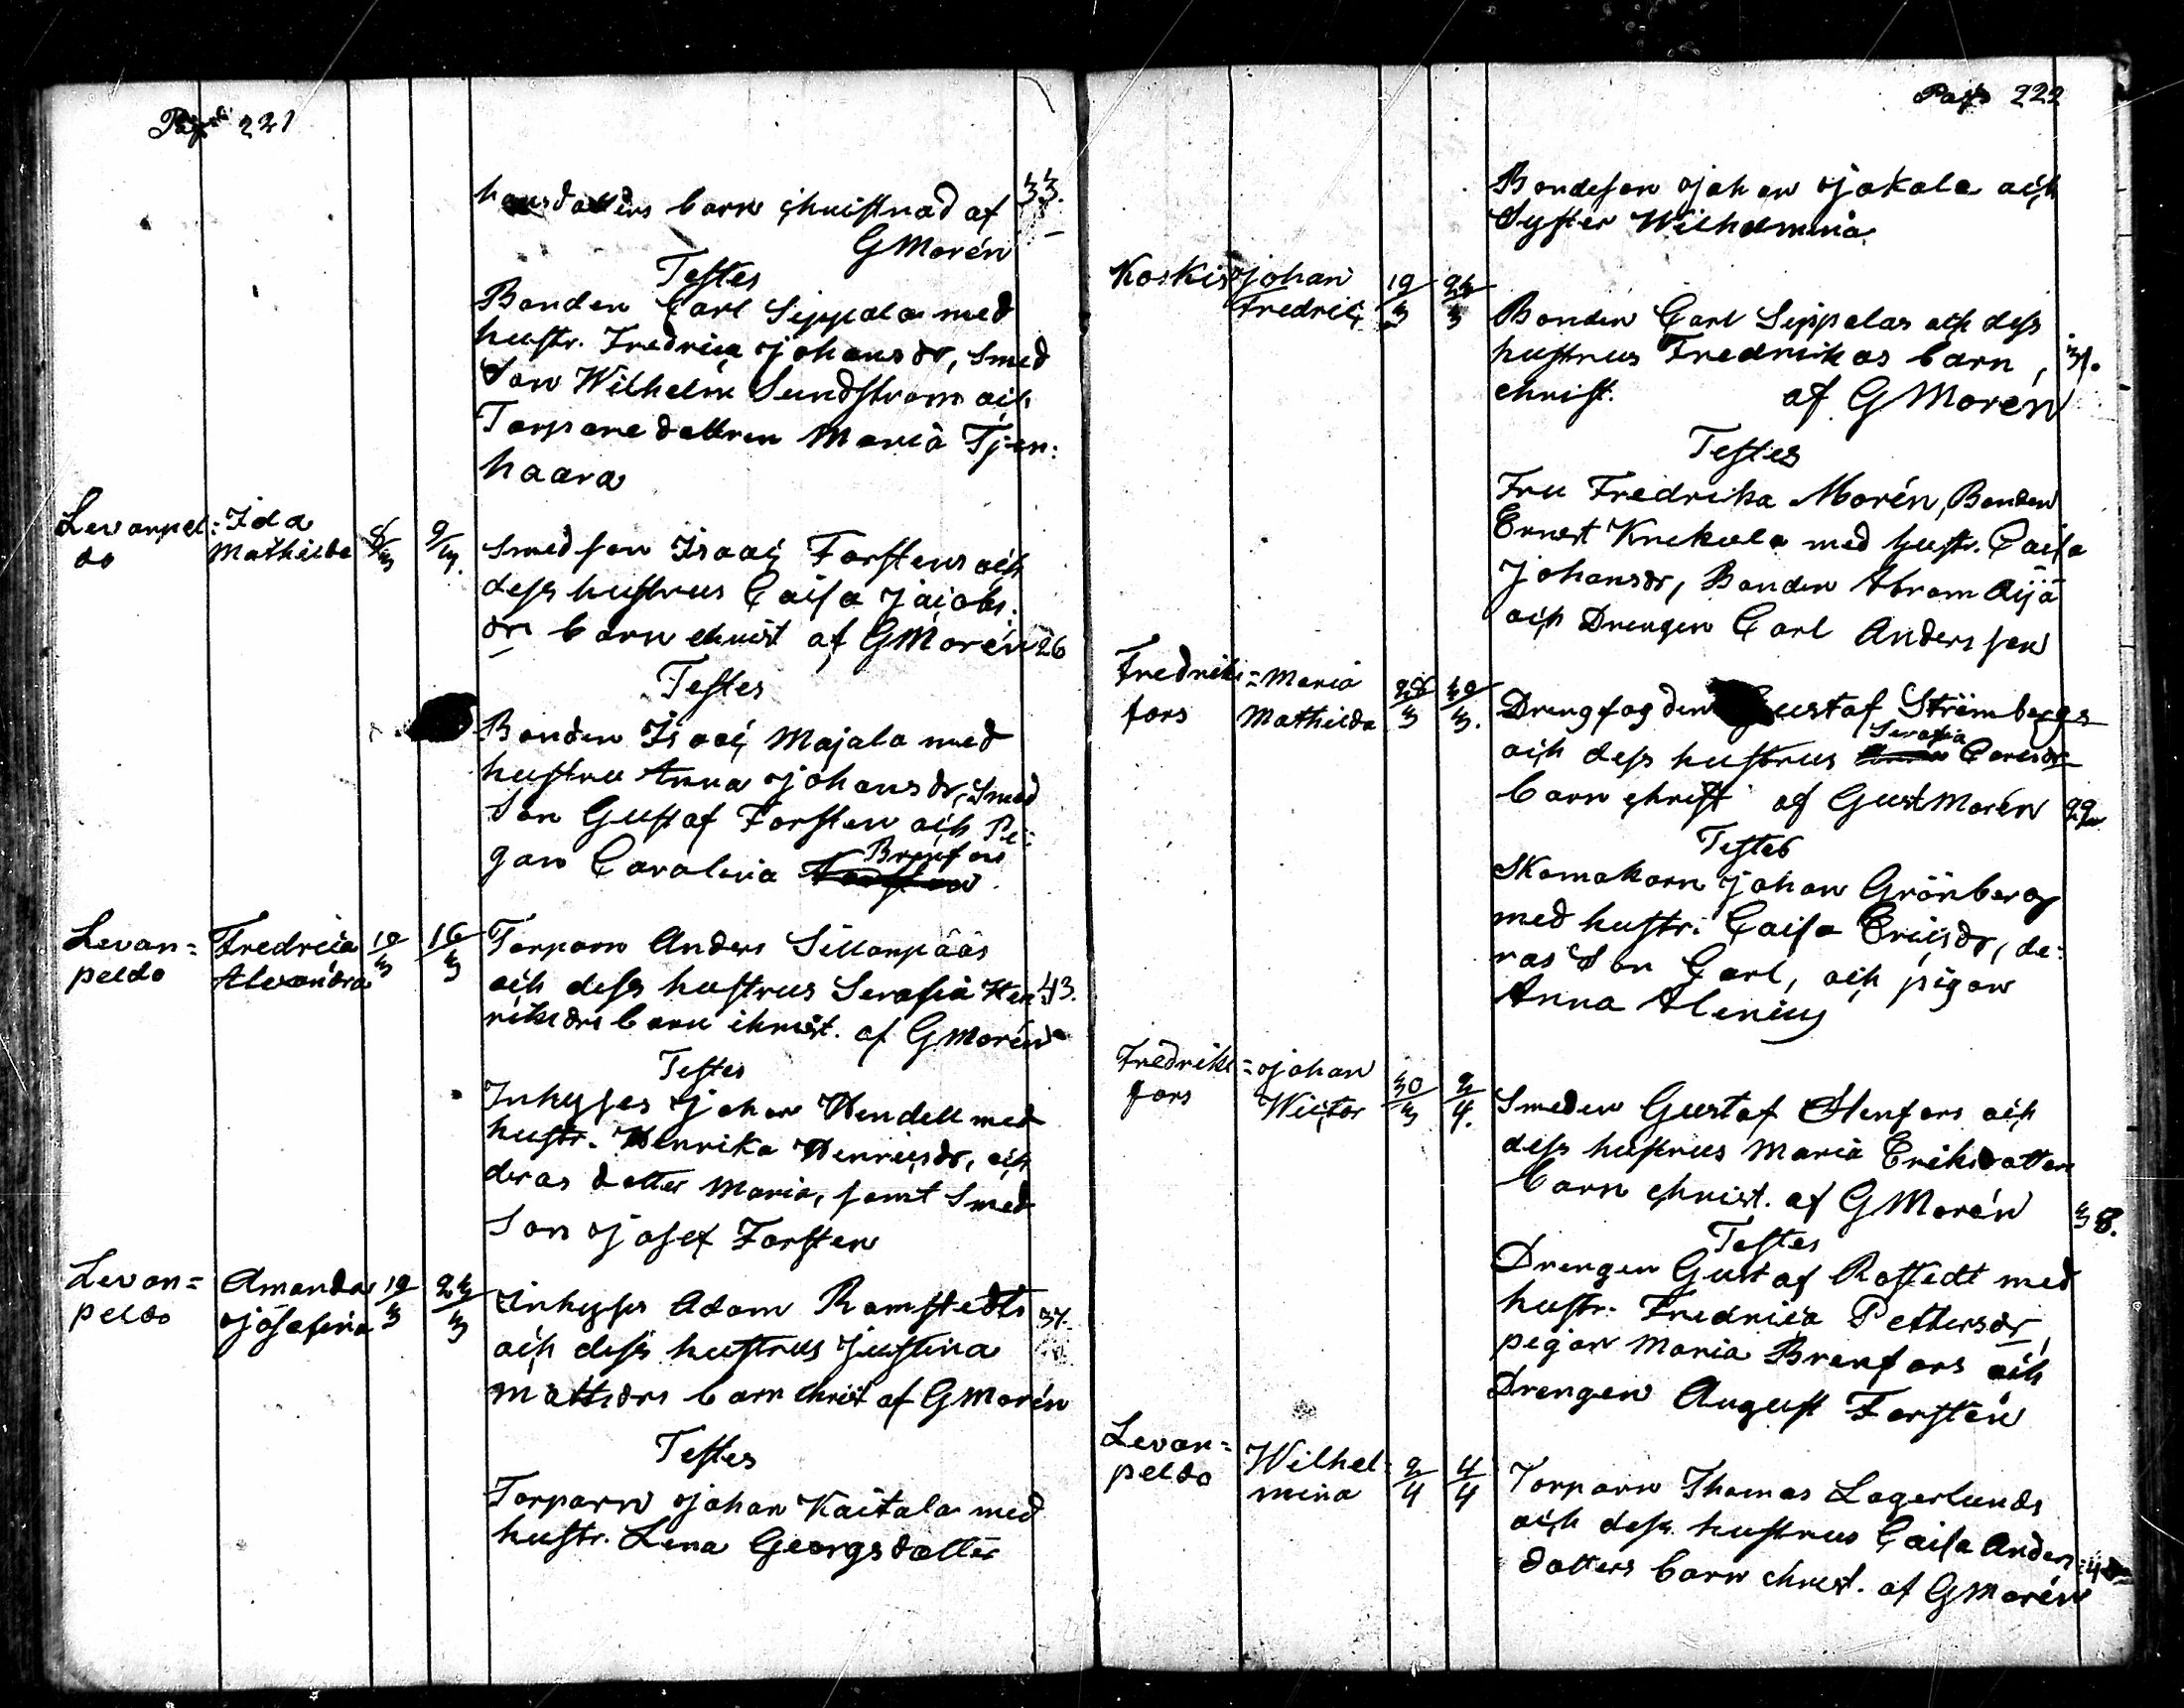 Pagina 221
hansdotters barn christnad af 33.
G Morén
Testes
Bonden Carl Seppala med
hustr. Fredrica Johansdr, Smed
Son Wilhelm Sundstrom och
Torparedottren Maria Tjen:
haara
Levanpel: Ida
do Mathilda 8/3 9/3. Smedson Isaac Forstens och
dess hustrus Caisa Jacobs:
dr: barn christ af G Morén 26
Testes
Bonden Isaac Majala med
hustru Anna Johansdr, Smed
Son Gustaf Forsten och Pi:
gan Carolina Brenfors
Levan= Fredrica 10/3 16/3 Torparn Anders Sillanpääs
peldo Alexandra och dess hustrus Serafia Hen 43.
riksdrs barn christ. af G Morén
Testes
Inhyses Johan Wendell med
hustr. Henrika Henricsdr, och
deras dotter Maria, samt Smed
Son Josef Forsten
Levan= Amanda 19/3 23/3 Inhyses Adam Ramstedts 37.
peldo Josefina och dess hustrus Justina
Mattsdrs barn christ af G Morén
Testes
Torparn Johan Kaitala med
hustr. Lena Georgsdotter
Pag 222
Bondeson Johan Jakala och
Syster Wilhelmina
Koskis Johan 19/3 23/3
Fredric Bonden Carl Seppalas och dess
hustrus Fredrikas barn, 31.
christ. af G Morén
Testes
Fru Fredrika Morén, Bonden
Ernest Knekula med hustr. Caisa
Johansdr, Bonden Abram Äijä
och Drengen Carl Andersson
Fredriks= Maria 28/3 30/3.
fors Mathilda Drengfogden Gustaf Strömbergs
Serafia
och dess hustrus Carlsdr
barn christ af Gust Morén 29
Testes
Skomakarn Johan Grönberg
med hustr: Caisa Ericsdr, de:
ras Son Carl, och pigan
Anna Alenius
Fredriks= Johan 30/3 2/4.
fors Victor Smeden Gustaf Stenfors och
dess hustrus Maria Eriksdotters
barn christ. af G Morén 38.
Testes
Drengen Gustaf Rostedt med
hustr. Fredrica Pettersdr,
pigan Maria Brenfors och
Drengen August Forstén
Levan= Wilhel= 2/4 4/4
peldo mina Torparn Thomas Lagerlunds
och dess hustrus Caisa Anders=
dotters barn christ. af G Morén